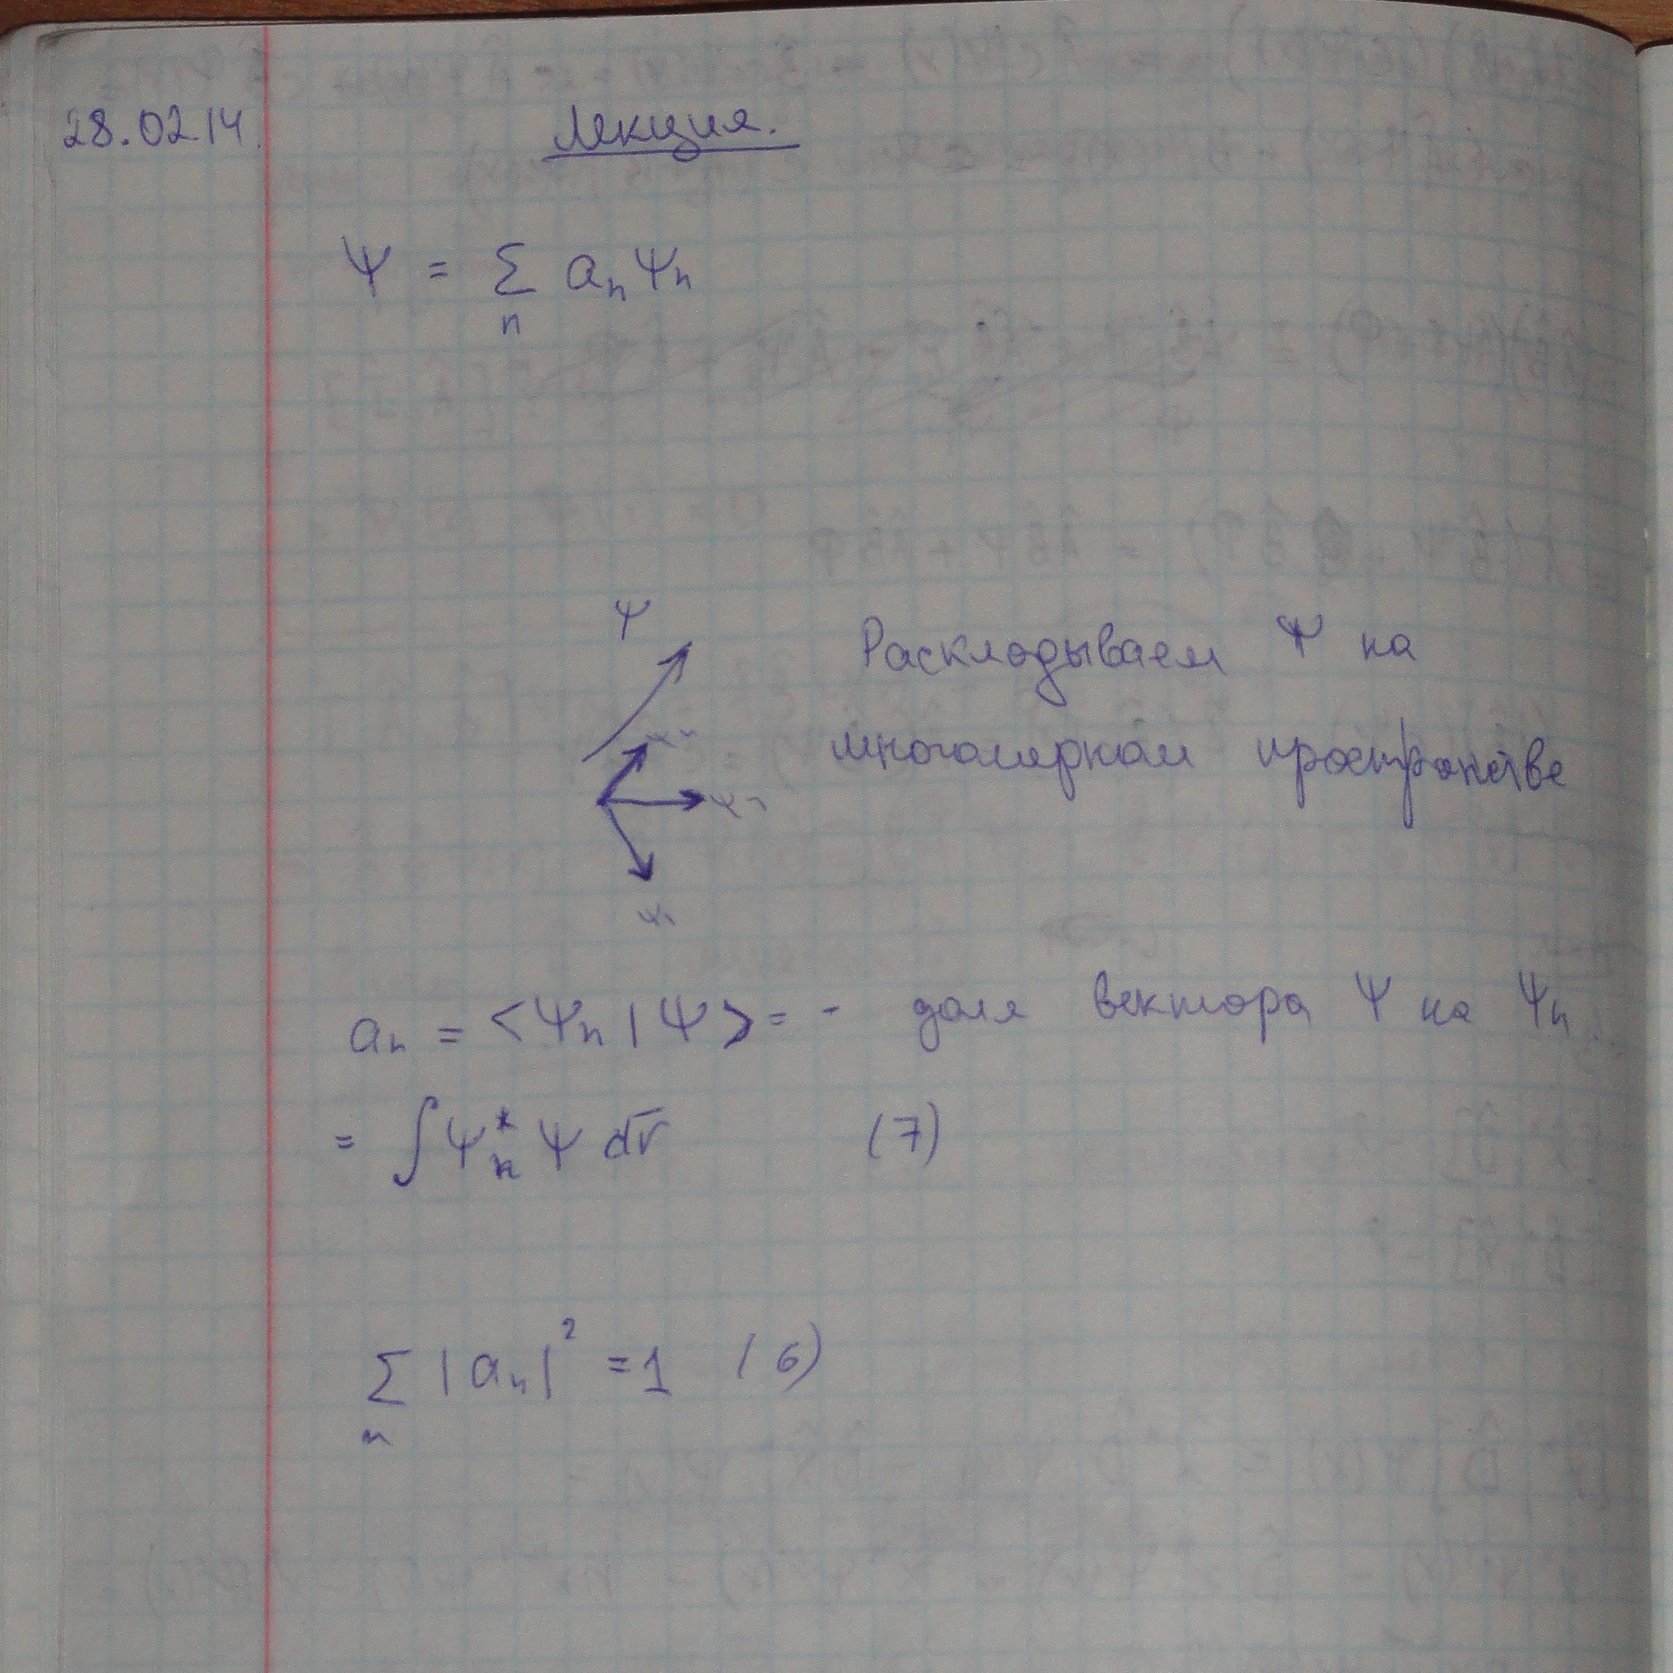 28.02.14.
Лекция.
Ψ = Σ aₙ Ψₙ
n
Ψ
Раскладываем Ψ на
многомерном пространстве
Ψ₁
aₙ = <Ψₙ | Ψ> = - доля вектора Ψ на Ψₙ
= ∫ Ψₙ* Ψ dr̅ (7)
Σ |aₙ|² = 1 (6)
n